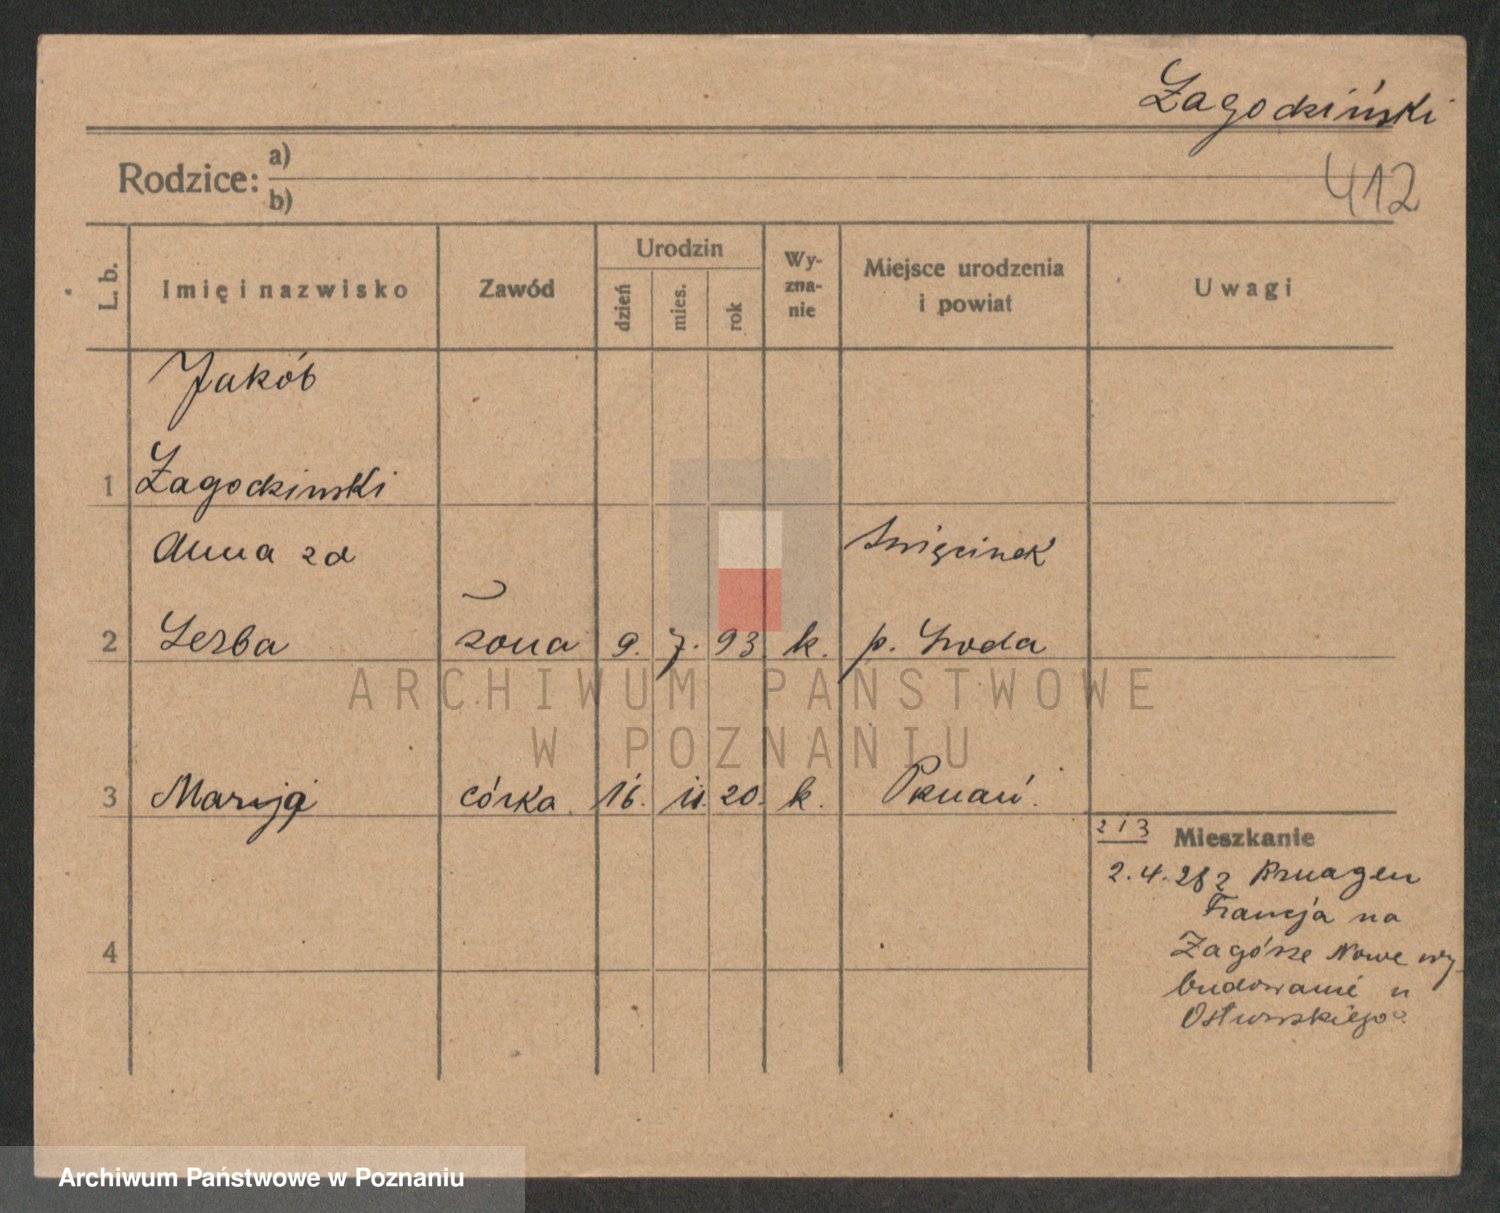 Zagodziński
Rodzice: a)
b)
412
L. b.
Imię i nazwisko
Zawód
Urodzin
dzień
mies.
rok
Wy-
zna-
nie
Miejsce urodzenia
i powiat
Uwagi
Jakób
1 Zagodzinski
Anna zd Święcinek
2 Lerba żona 9. 7. 93 k. p. Środa
3 Maryja córka 16. 11. 20. k. Poznań.
4
2 i 3 Mieszkanie
2.4.28 z
Francja na
Zagórze Nowe wy-
budowanie u
ARCHIWUM PAŃSTWOWE
W POZNANIU
Archiwum Państwowe w Poznaniu